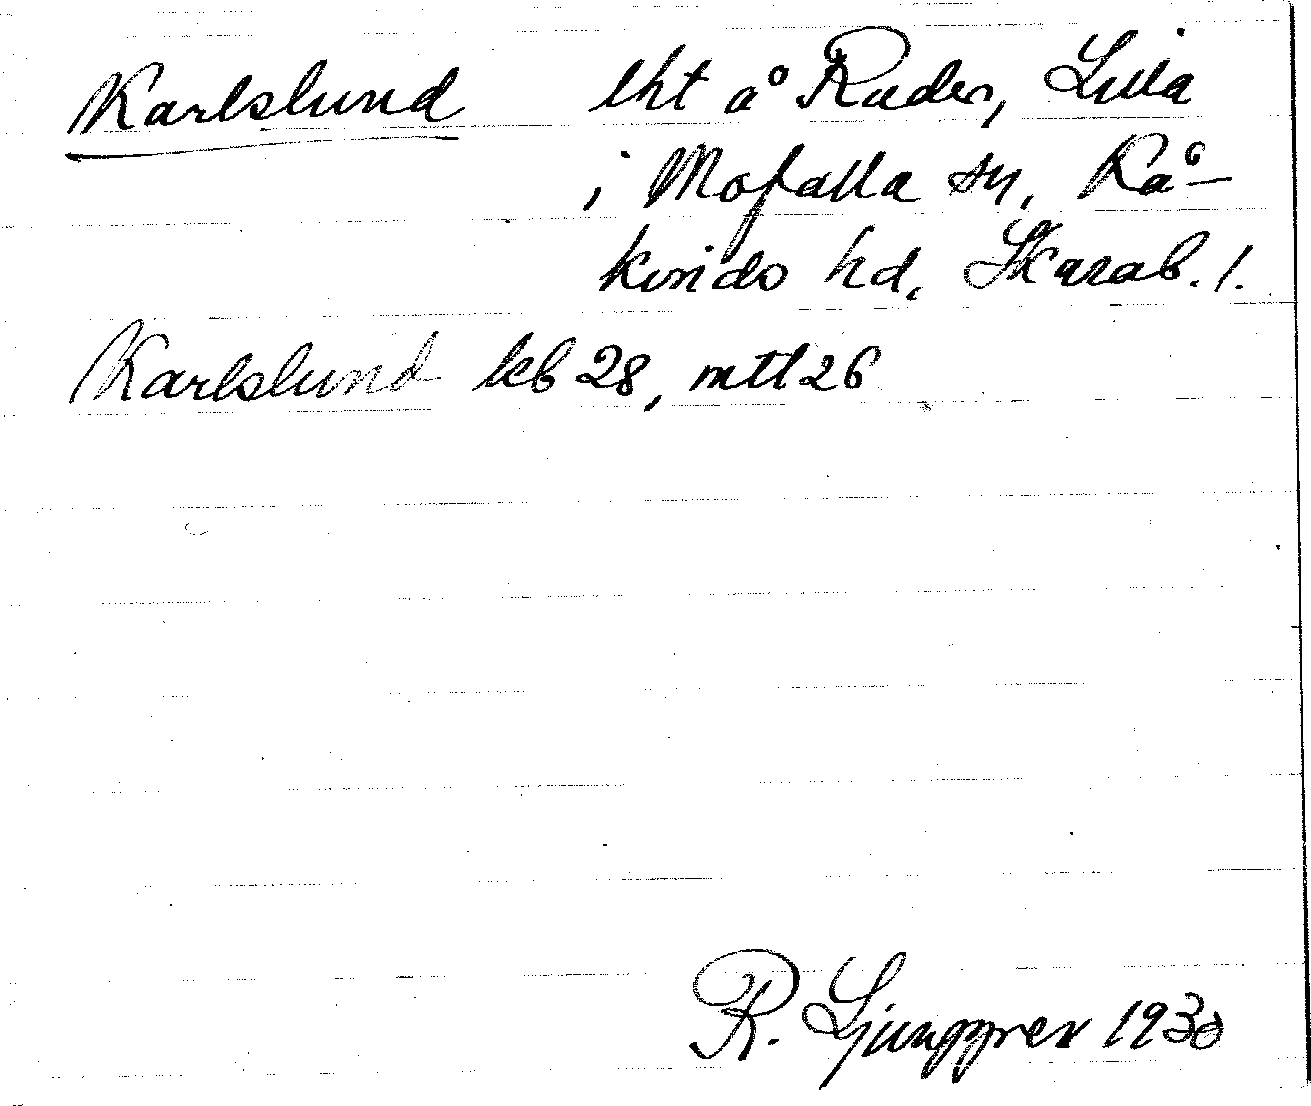 Karlslund lht å Ruder, Lilla
i Mofalla sn, Kå-
kinds hd, Skarab. l.
Karlslund kb 28, mtl 26
R. Ljunggren 1930